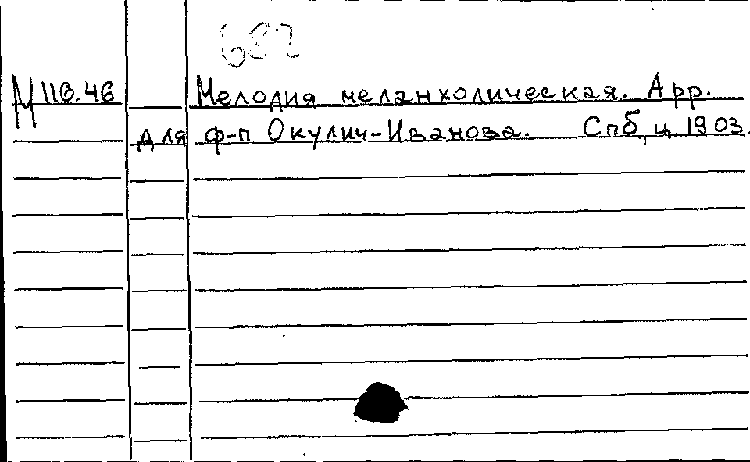 682
М 116.46 Мелодия меланхолическая. Арр.
для ф-п Окулич-Иванова. Спб, ц. 1903.